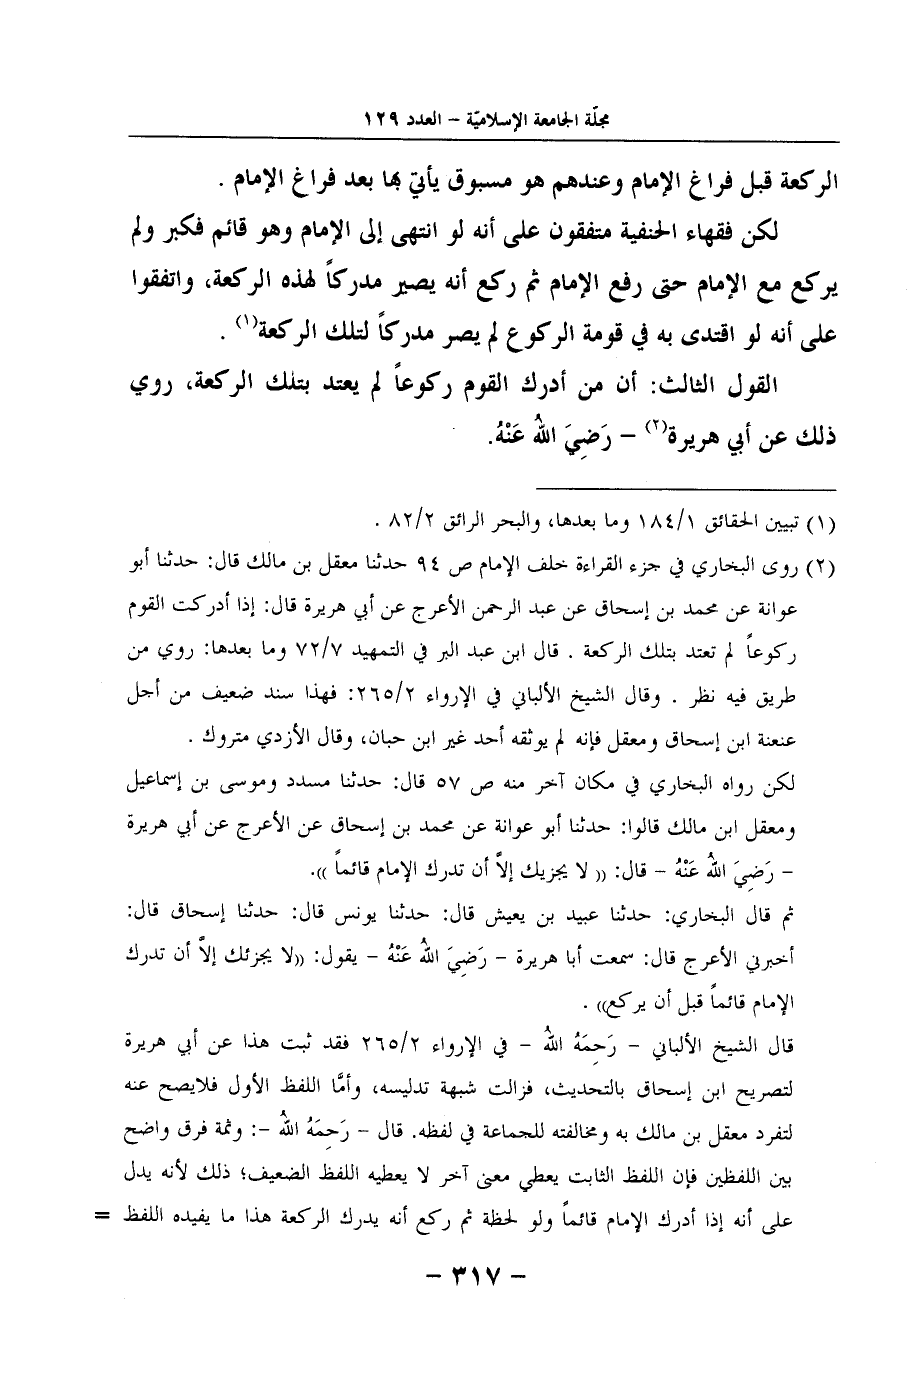 مجلّة الجامعة الإسلاميّة – العدد ١٢٩
الركعة قبل فراغ الإمام وعندهم هو مسبوق يأتي بها بعد فراغ الإمام .
لكن فقهاء الحنفية متفقون على أنه لو انتهى إلى الإمام وهو قائم فكبر ولم
يركع مع الإمام حتى رفع الإمام ثم ركع أنه يصير مدركاً لهذه الركعة، واتفقوا
على أنه لو اقتدى به في قومة الركوع لم يصر مدركاً لتلك الركعة(١) .
القول الثالث: أن من أدرك القوم ركوعاً لم يعتد بتلك الركعة، روي
ذلك عن أبي هريرة(٢) – رَضِيَ اللهُ عَنْهُ.
(١) تبيين الحقائق ١٨٤/١ وما بعدها، والبحر الرائق ٨٢/٢ .
(٢) روى البخاري في جزء القراءة خلف الإمام ص ٩٤ حدثنا معقل بن مالك قال: حدثنا أبو
عوانة عن محمد بن إسحاق عن عبد الرحمن الأعرج عن أبي هريرة قال: إذا أدركت القوم
ركوعاً لم تعتد بتلك الركعة . قال ابن عبد البر في التمهيد ٧٢/٧ وما بعدها: روي من
طريق فيه نظر . وقال الشيخ الألباني في الإرواء ٢٦٥/٢: فهذا سند ضعيف من أجل
عنعنة ابن إسحاق ومعقل فإنه لم يوثقه أحد غير ابن حبان، وقال الأزدي متروك .
لكن رواه البخاري في مكان آخر منه ص ٥٧ قال: حدثنا مسدد وموسى بن إسماعيل
ومعقل ابن مالك قالوا: حدثنا أبو عوانة عن محمد بن إسحاق عن الأعرج عن أبي هريرة
– رَضِيَ اللهُ عَنْهُ – قال: « لا يجزيك إلاَّ أن تدرك الإمام قائماً ».
ثم قال البخاري: حدثنا عبيد بن يعيش قال: حدثنا يونس قال: حدثنا إسحاق قال:
أخبرني الأعرج قال: سمعت أبا هريرة – رَضِيَ اللهُ عَنْهُ – يقول: «لا يجزئك إلاَّ أن تدرك
الإمام قائماً قبل أن يركع» .
قال الشيخ الألباني – رَحِمَهُ اللهُ – في الإرواء ٢٦٥/٢ فقد ثبت هذا عن أبي هريرة
لتصريح ابن إسحاق بالتحديث، فزالت شبهة تدليسه، وأمَّا اللفظ الأول فلايصح عنه
لتفرد معقل بن مالك به ومخالفته للجماعة في لفظه. قال – رَحِمَهُ اللهُ –: وثمة فرق واضح
بين اللفظين فإن اللفظ الثابت يعطي معنى آخر لا يعطيه اللفظ الضعيف؛ ذلك لأنه يدل
على أنه إذا أدرك الإمام قائماً ولو لحظة ثم ركع أنه يدرك الركعة هذا ما يفيده اللفظ =
– ٣١٧ –